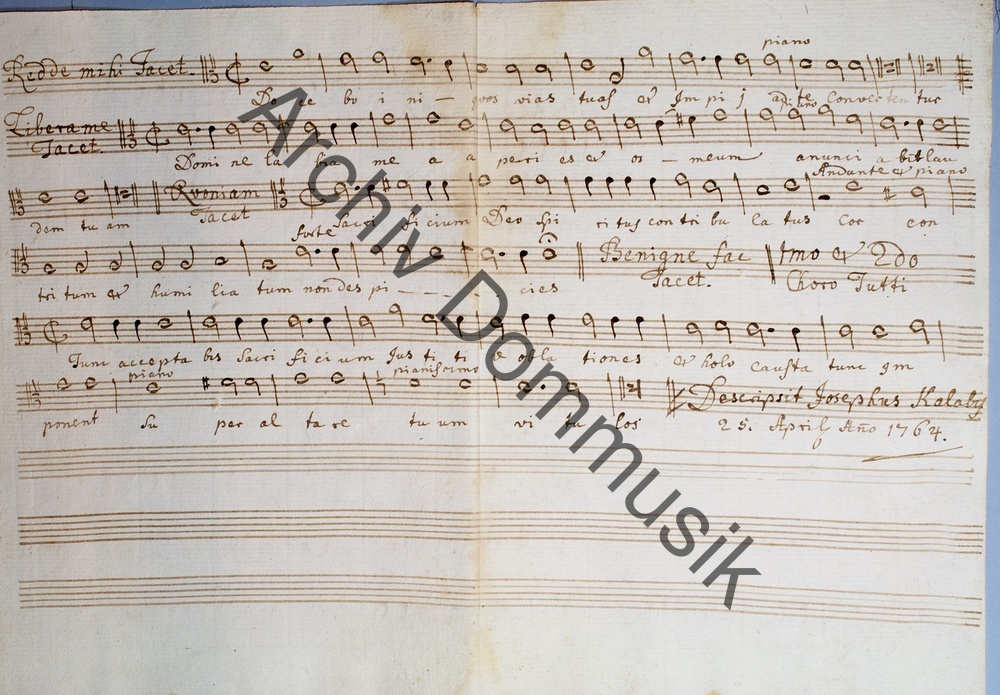 Redde mihi Tacet. piano
Do ce bo i ni - quos vias tuas et Im pi j ad te Converten tur
Libera me Tacet.
Domi ne la bia me a a peri es et os - meum anunci a bit lau
Quoniam Tacet Andante et piano
dem tu am forte Sacri ficium Deo Spi ri tus con tri bu la tus Cor con
Benigne fac Tacet. Imo et 2do Choro Tutti
tri tum et humi lia tum non des pi - - - cies
Tum accepta bis Sacri fi ci um Jus ti ti e obla tiones et holo causta tunc Im
piano pianissimo
Descripsit Josephus Kalabÿs
ponent Su per al ta re tu um vi tu los
25. April Año 1764.
Archiv Dommusik